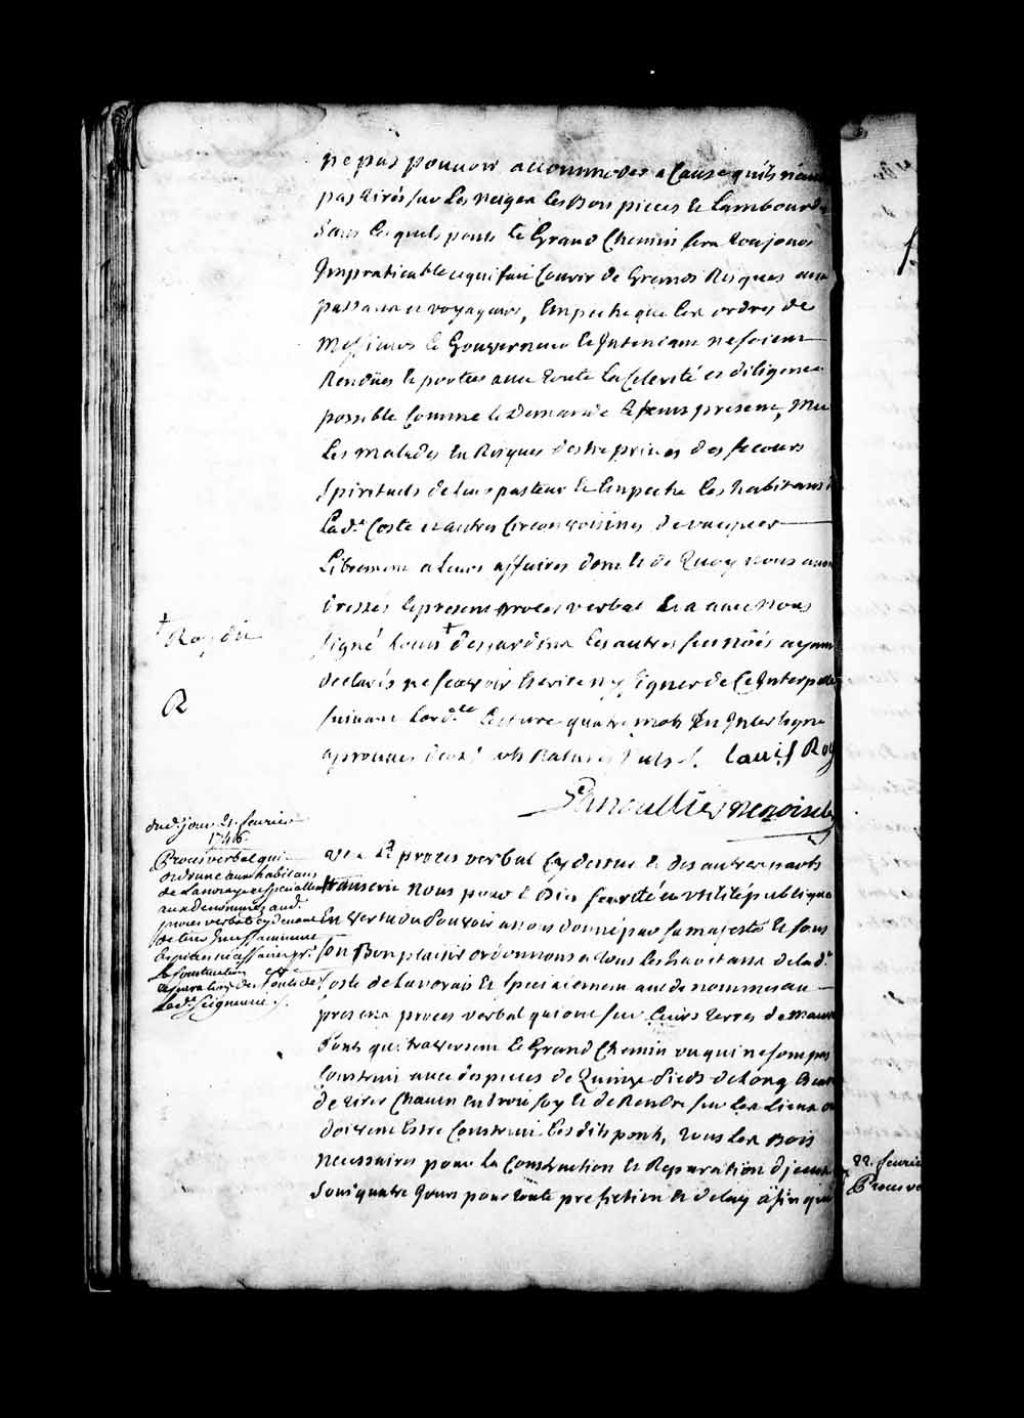 ne pas pouvoir accommoder a Cause quils n'ont
pas tirés sur Les neiges les Bon pieces & Lambourdes
Sans lesquels ponts le Grand Chemin sera toujours
Impraticable ce qui fait Courir de Grands Risques aux
passans et voyageurs, Empeche que Les ordres de
Messieurs le Gouverneur & Intendant ne soient
Rendües & portées avec toute La Celerité et diligence
possible Comme le demande le tems present, Met
Les malades En Risques destre privés des secours
Spirituels de Leur pasteur & Empeche les habitans d
Lad.e Coste et autres Circonvoisines de vacquer
Librement a Leurs affaires dont & de Quoy nous avons
dressés le present proces verbal Et a avec Nous
signé Louis + desjardins Les autres susnoés ayant
declarés ne scavoir Ecrire ny signer de Ce Interpellé
suivant Lord.ce Lecture quatre mots En Interligne
aprouvés mots Raturés nuls. Louis Roy
Pinoullier nepoisle
+ Roy dit
R
dud. jour 21. fevrier
1746.
Proces verbal qui
ordonne aux habitans
de Lavoye et speciallement
aux denommez aud.
proces verbal Cy devant
de tirer Incessamment
les pieces necessaires p.r
la Construction et
reparations des Ponts de
Lad.e Seigneurie
Veu le proces verbal Cy dessus & des autres parts
transcrit Nous pour le Bien seureté et Utilité publique
En vertu du Pouvoir a nous donné par sa majesté & sous
son Bon plaisir ordonnons a tous les habitans de lad.e
Coste de Laverais & specialement aux denommés au
present proces verbal qui ont sur Leurs terres de mauvais
Ponts qui traversent le Grand Chemin ou qui ne sont pas
Construit avec des pieces de Quinze Pieds de Long
de tirer Chacun En droit soy & de Rendre sur Les Lieux ou
doivent Estre Construit les dits ponts, tous Les Bois
necessaires pour La Construction & Reparation d'jceux
sous quatre Jours pour toute prefiction & delay afin que
22. fevrier
Proces ve